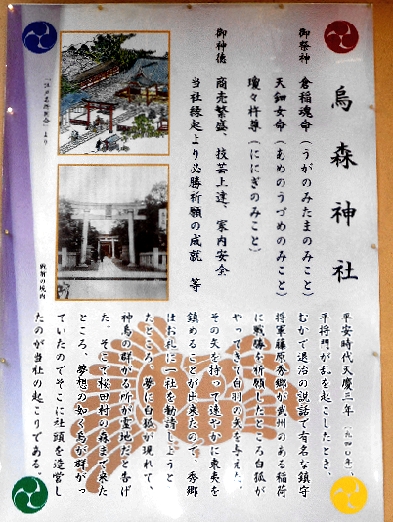 烏森神社
御祭神
倉稲魂命(うがのみたまのみこと)
天鈿女命(あめのうづめのみこと)
瓊々杵尊(ににぎのみこと)
御神徳
商売繁盛、技芸上達、家内安全
当社縁起より必勝祈願の成就 等
「江戸名所図会」より
戦前の境内
平安時代天慶三年(九四〇年)、
平将門が乱を起こしたとき、
むかで退治の説話で有名な鎮守
将軍藤原秀郷が武州のある稲荷
に戦勝を祈願したところ白狐が
やってきて白羽の矢を与えた。
その矢を持って速やかに東夷を
鎮めることが出来たので、秀郷
はお礼に一社を勧請しようと
したところ、夢に白狐が現れて、
神鳥の群がる所が霊地だと告げ
た。そこで桜田村の森まで来た
ところ、夢想の如く烏が群がっ
ていたのでそこに社頭を造営し
たのが当社の起こりである。